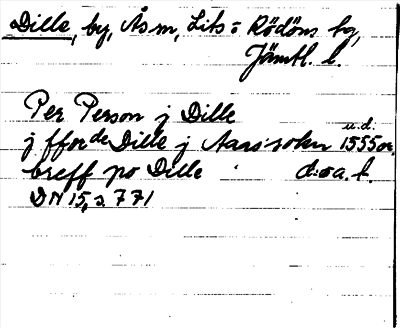 Dille, by, Ås sn, Lits o Rödöns tg,
Jämtl. l.
Per Person j Dille
u.d.
j fforde Dille j Aars sokn 1555 or.
breff po Dille d:o a. k.
DN 15, s. 771